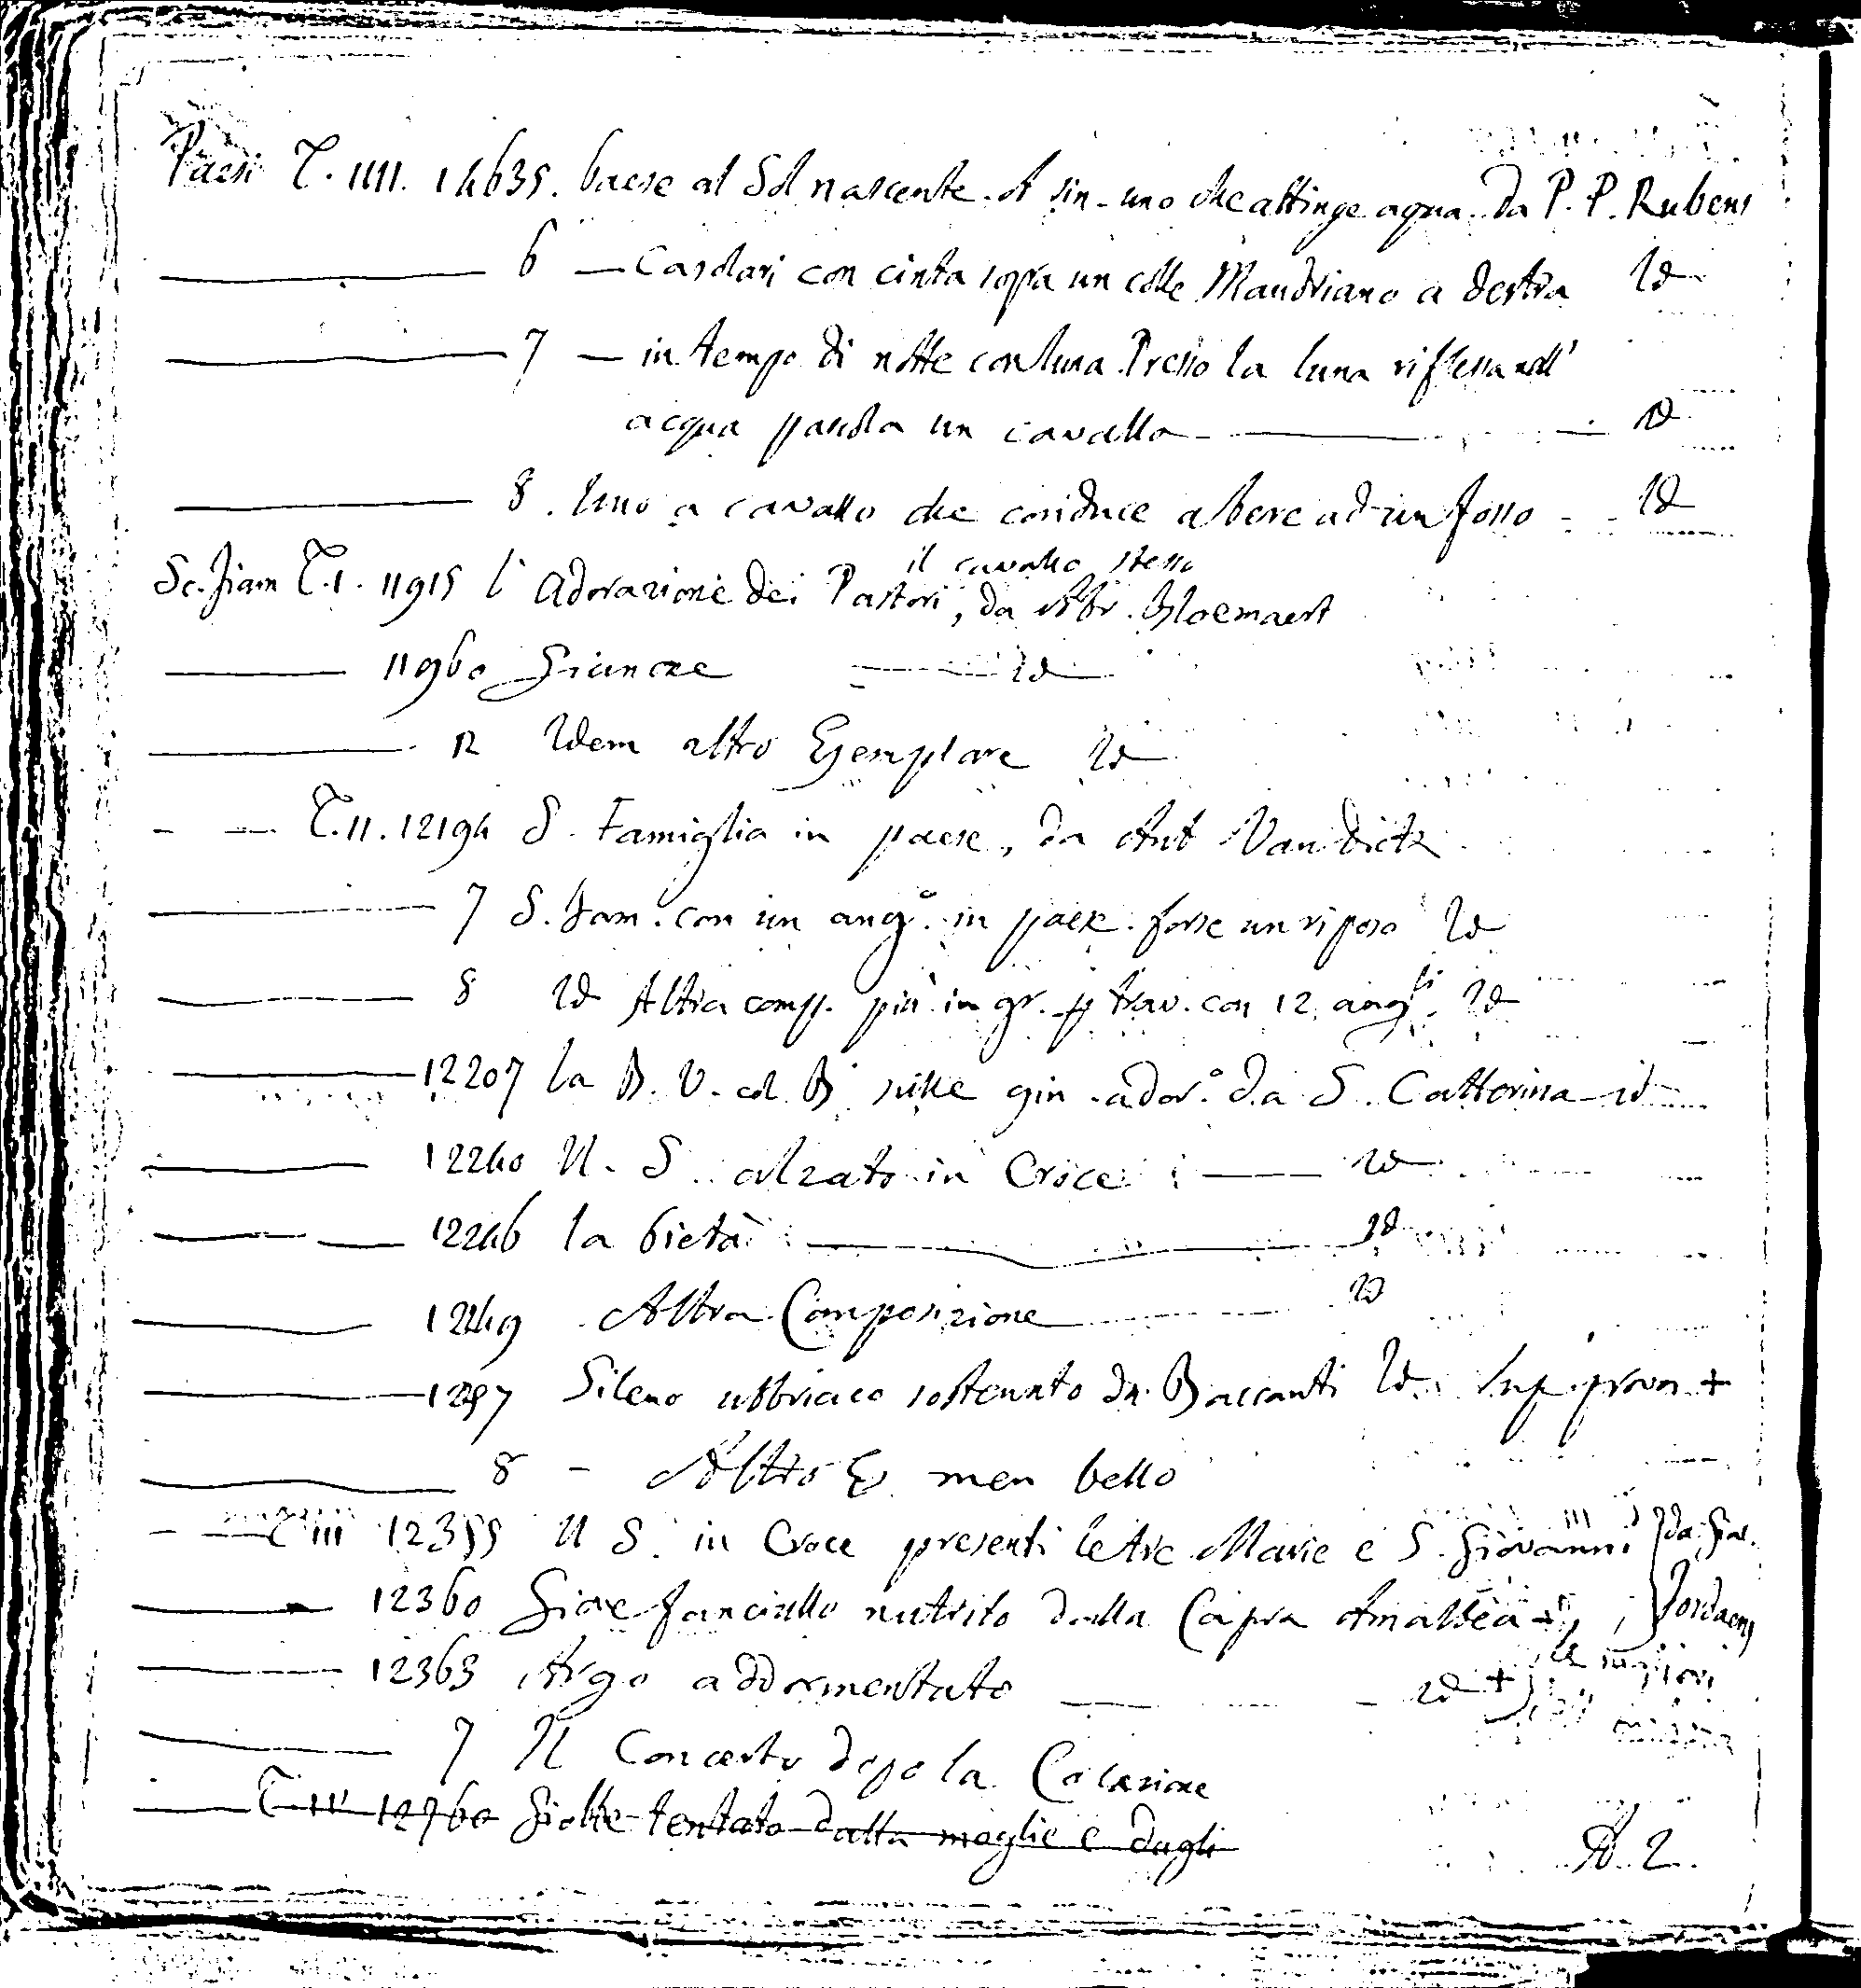 Paesi T. IIII. 14635. Paese al Sol nascente. A sin. uno che attinge aqua. da P. P. Rubens
6 — Casolari con cinta sopra un colle Mandriano a destra Id
7 — in tempo di notte con luna. Presso la luna riflessa nell'
acqua pascola un cavallo — Id
8. Uno a cavallo che conduce a bere ad un fosso - - Id
il cavallo stesso
Sc. Fiam T. I. 11915 l'Adorazione dei Pastori, da Abr. Bloemaert
11960 Giunone — Id
Idem altro Esemplare Id
— T. II. 12194 S. Famiglia in paese, da Ant Vandick
7 S. Fam. con un ang.o in paese. forse un riposo Id
8 Id Altra comp. più in gr. p trav. con 12 ang.li Id
12207 la B. V. col B. sulle gin. ador.o da S. Catterina id
12240 N. S. alzato in Croce — Id
12246 la Pietà — Id
12249 Altra Composizione — Id
1297 Sileno ubbriaco sostenuto da Baccanti Id. Sup. prova +
8 - Altro E. men bello
— T III 12355 N S. in Croce presenti le tre Marie e S. Giovanni } da Giac.
12360 Giove fanciullo nutrito dalla Capra Amaltea + } Jordaens
12363 Argo addormentato — id +) le migliori
7 Il Concerto dopo la Colazione
T. III 12760 Giobbe tentato dalla moglie e dagli
A. 2.